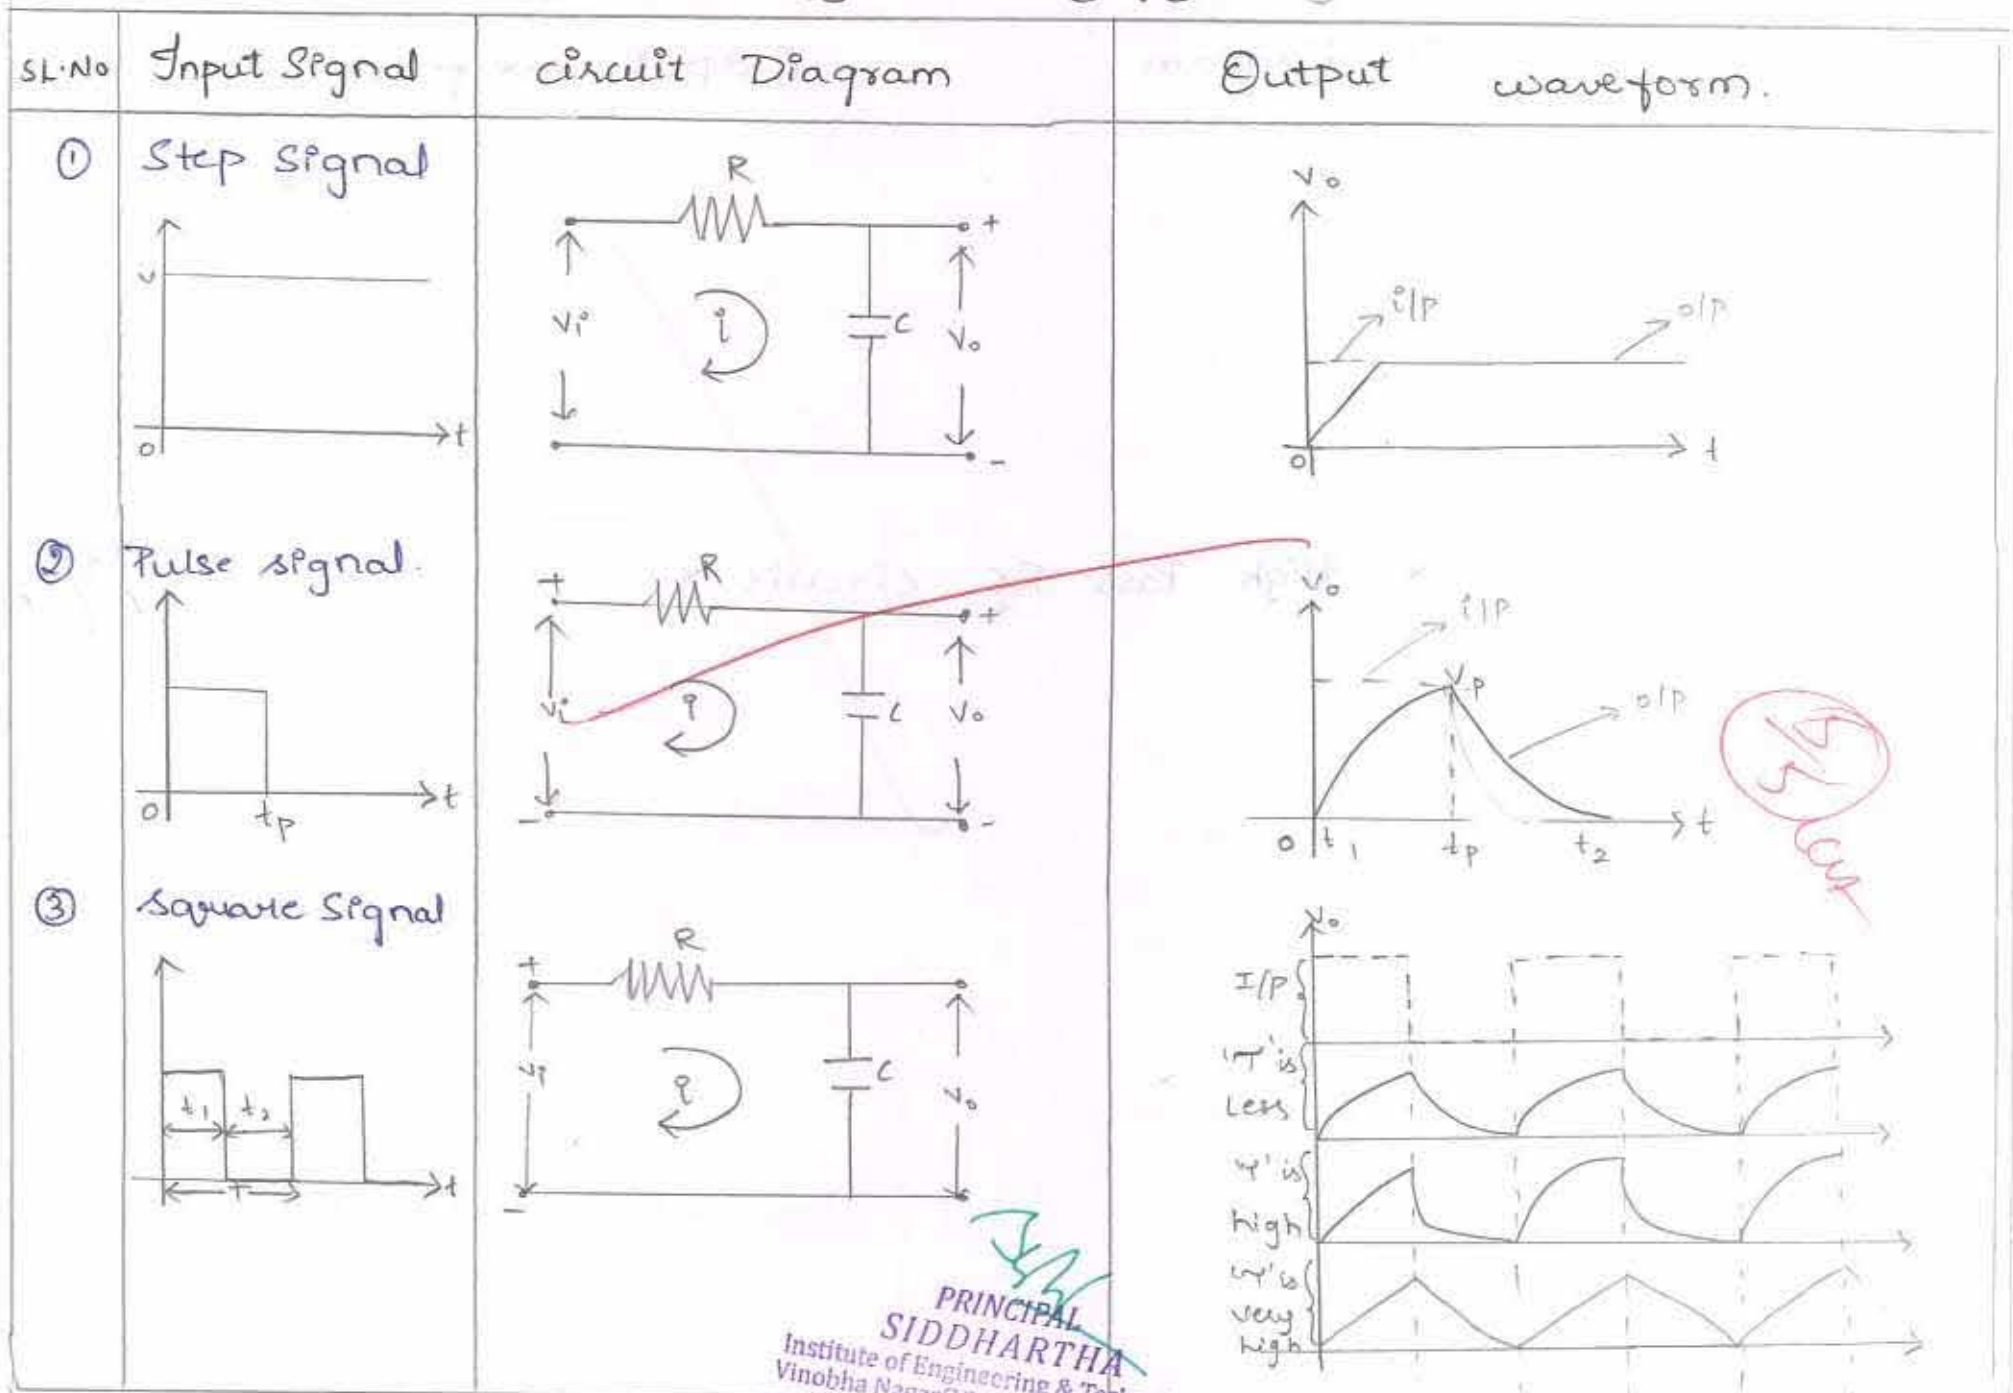 SL.No Input Signal circuit Diagram Output waveform.
① Step Signal
V
0
t
R
Vi
i
C
Vo
+
-
Vo
i/p
o/p
0
t
② Pulse signal.
0
tp
t
+
R
+
Vi
i
C
Vo
-
-
Vo
i/p
Vp
o/p
0
t1
tp
t2
t
③ Square Signal
t1
t2
T
t
+
R
Vi
i
C
Vo
-
Vo
I/P
'τ' is
Less
'τ' is
high
'τ' is
very
high
PRINCIPAL
SIDDHARTHA
Institute of Engineering &
Vinobha